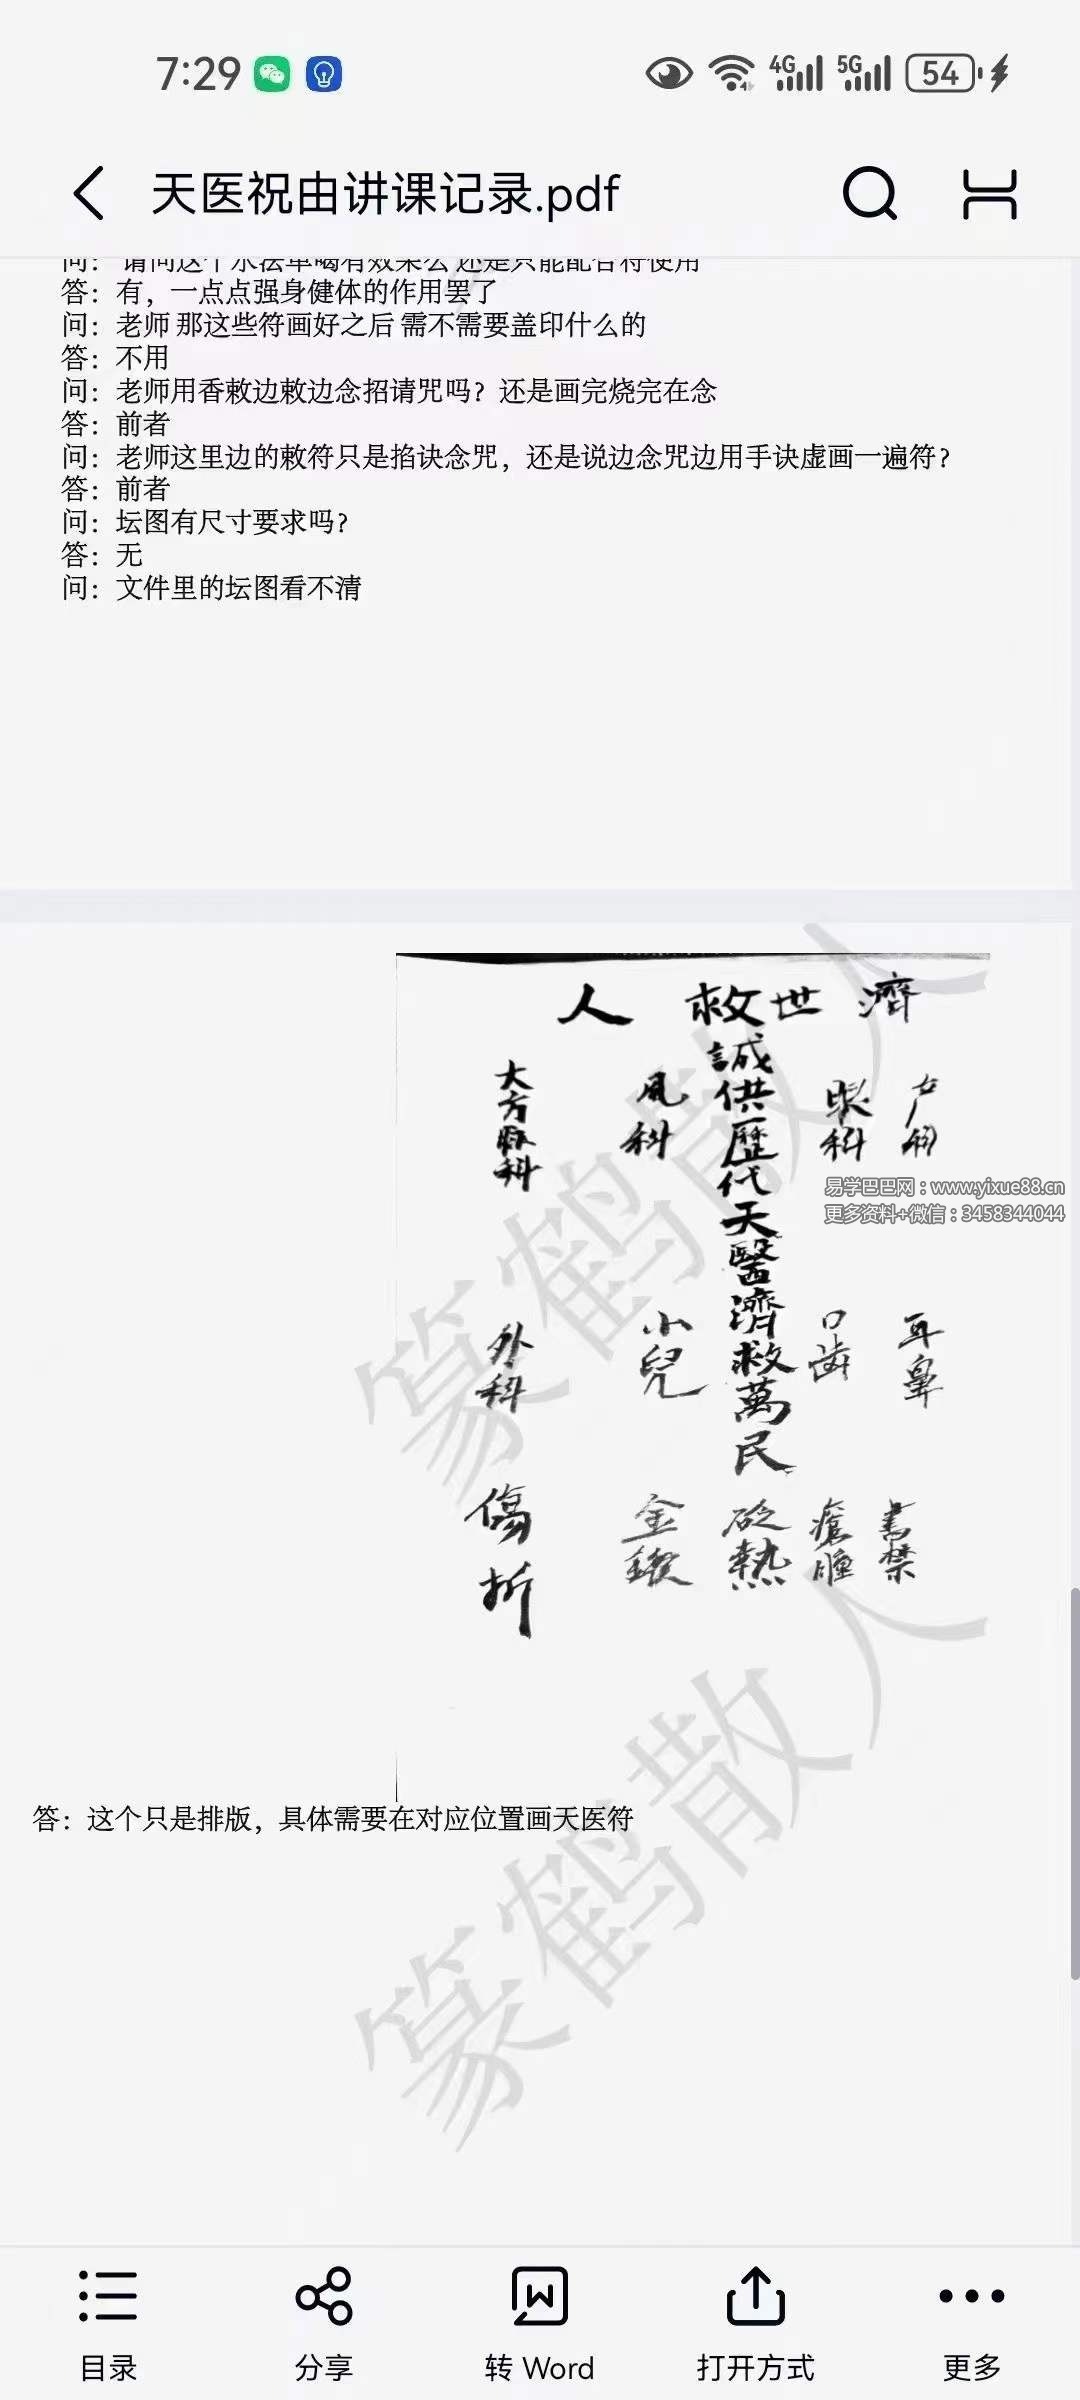 7:29
4G 5G 54
天医祝由讲课记录.pdf
问：请问这个水法单喝有效果么 还是只能配合符使用
答：有，一点点强身健体的作用罢了
问：老师 那这些符画好之后 需不需要盖印什么的
答：不用
问：老师用香敕边敕边念招请咒吗？还是画完烧完在念
答：前者
问：老师这里边的敕符只是掐诀念咒，还是说边念咒边用手诀虚画一遍符？
答：前者
问：坛图有尺寸要求吗？
答：无
问：文件里的坛图看不清
濟世救人
誠供歷代天醫濟救萬民
眼科
風科
大方脉科
耳鼻
口齒
小兒
外科
書禁
瘡腫
砭熱
金鏃
傷折
易学巴巴网：www.yixue88.cn
更多资料+微信：3458344044
篆鹤散人
答：这个只是排版，具体需要在对应位置画天医符
篆鹤散人
目录
分享
转 Word
打开方式
更多